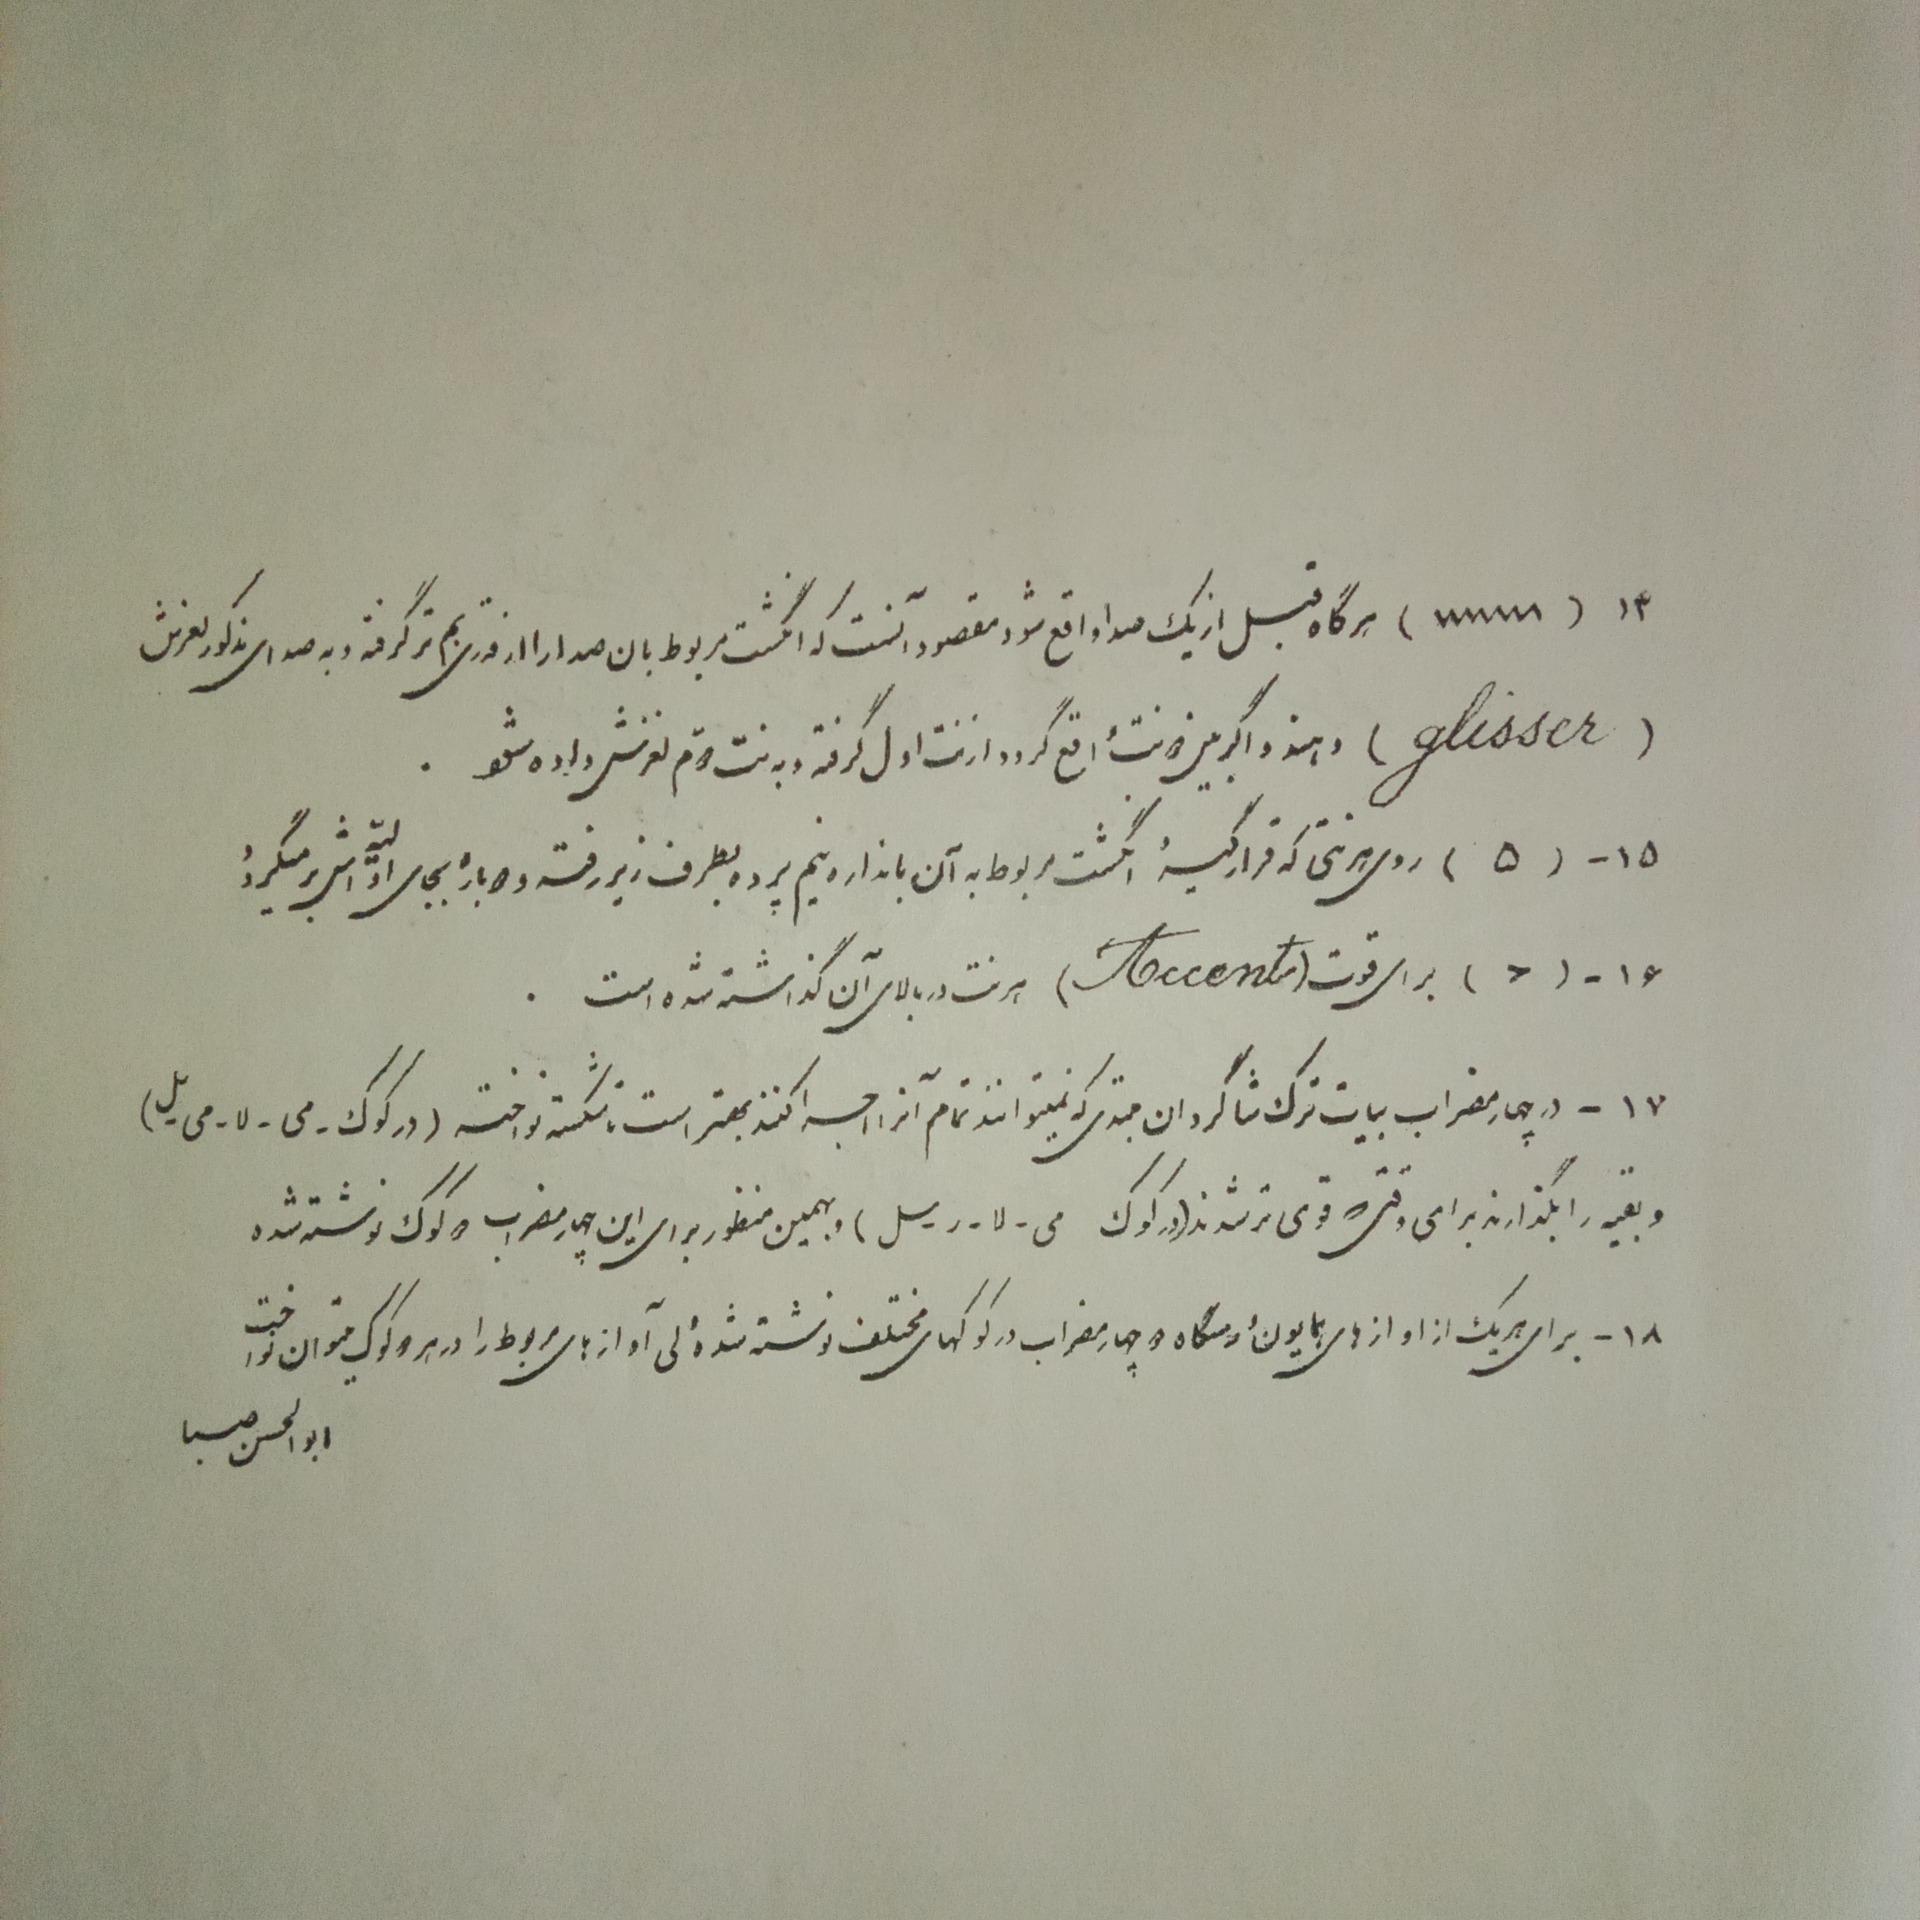 ۱۴ ( ʌʌʌʌʌʌʌ ) هرگاه قبل از یک صدا واقع شود مقصود آنست که انگشت مربوط بان صدا را از قدری بم تر گرفته و به صدای مذکور لغزش
( glisser ) دهند و اگر بین دو نت واقع گردد از نت اول گرفته و به نت دوم لغزش داده شود .
۱۵ - ( ۵ ) روی هر نتی که قرار گیرد انگشت مربوط به آن باندازه نیم پرده بطرف زیر رفته و دوباره بجای اولیه اش بر میگردد
۱۶ - ( > ) برای قوت (Accent) هر نت در بالای آن گذاشته شده است .
۱۷ - در چهار مضراب بیات ترک شاگردان مبتدی که نمیتوانند تمام آنرا اجرا کنند بهتر است تا شکسته نواخته ( در کوک - می - لا - می - سل )
و بقیه را بگذارند برای وقتی که قوی تر شدند ( در کوک می - لا - ر - سل ) و بهمین منظور برای این چهار مضراب دو کوک نوشته شده
۱۸ - برای هریک از اوازهای همایون و سه گاه دو چهار مضراب در کوکهای مختلف نوشته شده ولی آوازهای مربوط را در هر دو کوک میتوان نواخت
ابوالحسن صبا